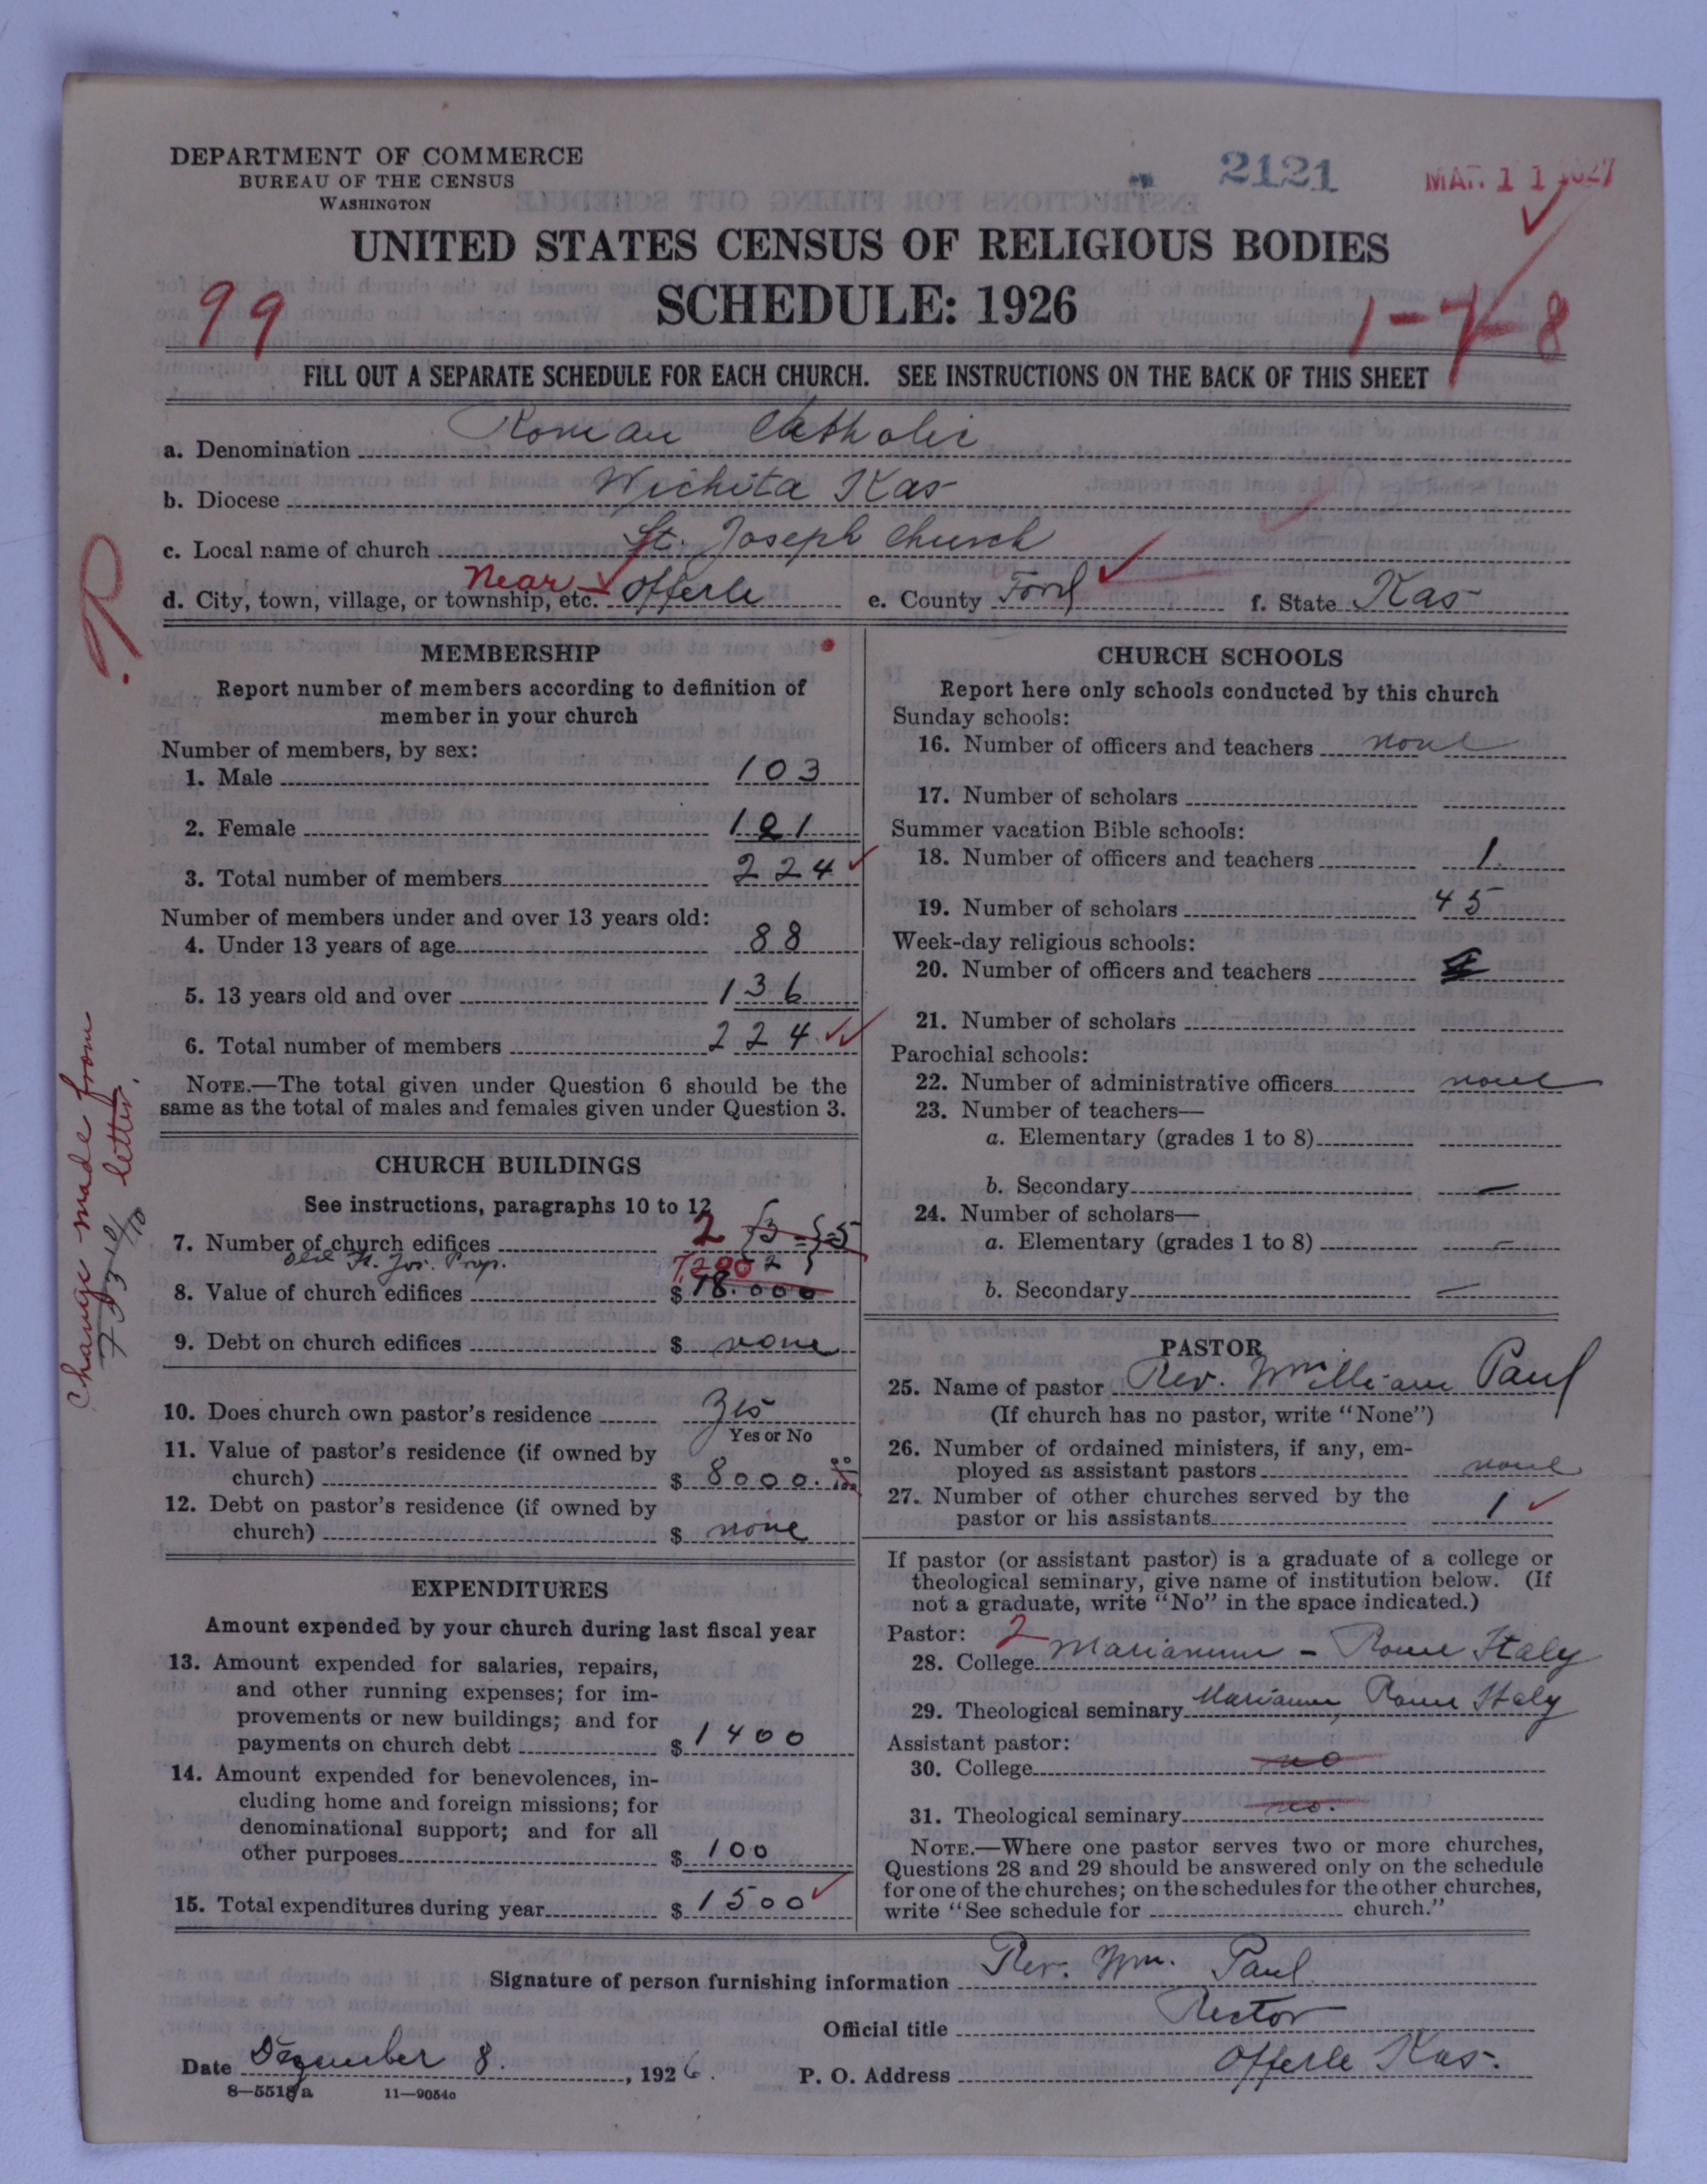 DEPARTMENT OF COMMERCE
BUREAU OF THE CENSUS
WASHINGTON
2121
MAR 11 1927
UNITED STATES CENSUS OF RELIGIOUS BODIES
SCHEDULE: 1926
99
1-7-8
FILL OUT A SEPARATE SCHEDULE FOR EACH CHURCH. SEE INSTRUCTIONS ON THE BACK OF THIS SHEET
a. Denomination Roman Catholic
b. Diocese Wichita Kas
c. Local name of church St. Joseph Church
d. City, town, village, or township, etc. Near Offerle e. County Ford f. State Kas
MEMBERSHIP
Report number of members according to definition of
member in your church
Number of members, by sex:
1. Male 103
2. Female 121
3. Total number of members 224
Number of members under and over 13 years old:
4. Under 13 years of age 88
5. 13 years old and over 136
6. Total number of members 224
NOTE.—The total given under Question 6 should be the
same as the total of males and females given under Question 3.
Change made from
letter.
CHURCH BUILDINGS
See instructions, paragraphs 10 to 12
7. Number of church edifices 2
Old St. Jos. Prop.
7200
8. Value of church edifices $ 18.000
9. Debt on church edifices $ none
10. Does church own pastor's residence Yes
Yes or No
11. Value of pastor's residence (if owned by
church) $ 8000.00
12. Debt on pastor's residence (if owned by
church) $ none
EXPENDITURES
Amount expended by your church during last fiscal year
13. Amount expended for salaries, repairs,
and other running expenses; for im-
provements or new buildings; and for
payments on church debt $ 1400
14. Amount expended for benevolences, in-
cluding home and foreign missions; for
denominational support; and for all
other purposes $ 100
15. Total expenditures during year $ 1500
CHURCH SCHOOLS
Report here only schools conducted by this church
Sunday schools:
16. Number of officers and teachers none
17. Number of scholars
Summer vacation Bible schools:
18. Number of officers and teachers 1.
19. Number of scholars 45
Week-day religious schools:
20. Number of officers and teachers
21. Number of scholars
Parochial schools:
22. Number of administrative officers none
23. Number of teachers—
a. Elementary (grades 1 to 8)
b. Secondary —
24. Number of scholars—
a. Elementary (grades 1 to 8) —
b. Secondary —
PASTOR
25. Name of pastor Rev. William Paul
(If church has no pastor, write "None")
26. Number of ordained ministers, if any, em-
ployed as assistant pastors none
27. Number of other churches served by the
pastor or his assistants 1
If pastor (or assistant pastor) is a graduate of a college or
theological seminary, give name of institution below. (If
not a graduate, write "No" in the space indicated.)
Pastor: 2
28. College Marianum - Rome Italy
29. Theological seminary Marianum, Rome Italy
Assistant pastor:
30. College no
31. Theological seminary no.
NOTE.—Where one pastor serves two or more churches,
Questions 28 and 29 should be answered only on the schedule
for one of the churches; on the schedules for the other churches,
write "See schedule for church."
Signature of person furnishing information Rev. Wm. Paul
Official title Rector
Date December 8., 1926. P. O. Address Offerle Kas.
8—5518a 11—9054c